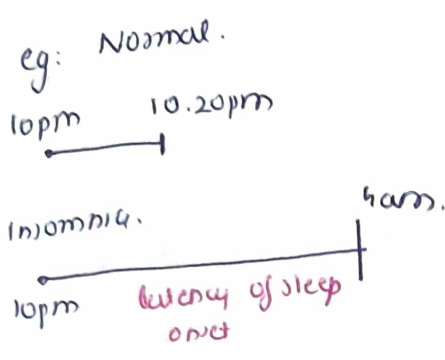 eg: Normal.
10pm 10.20pm
Insomnia. 4am.
10pm latency of sleep
onset